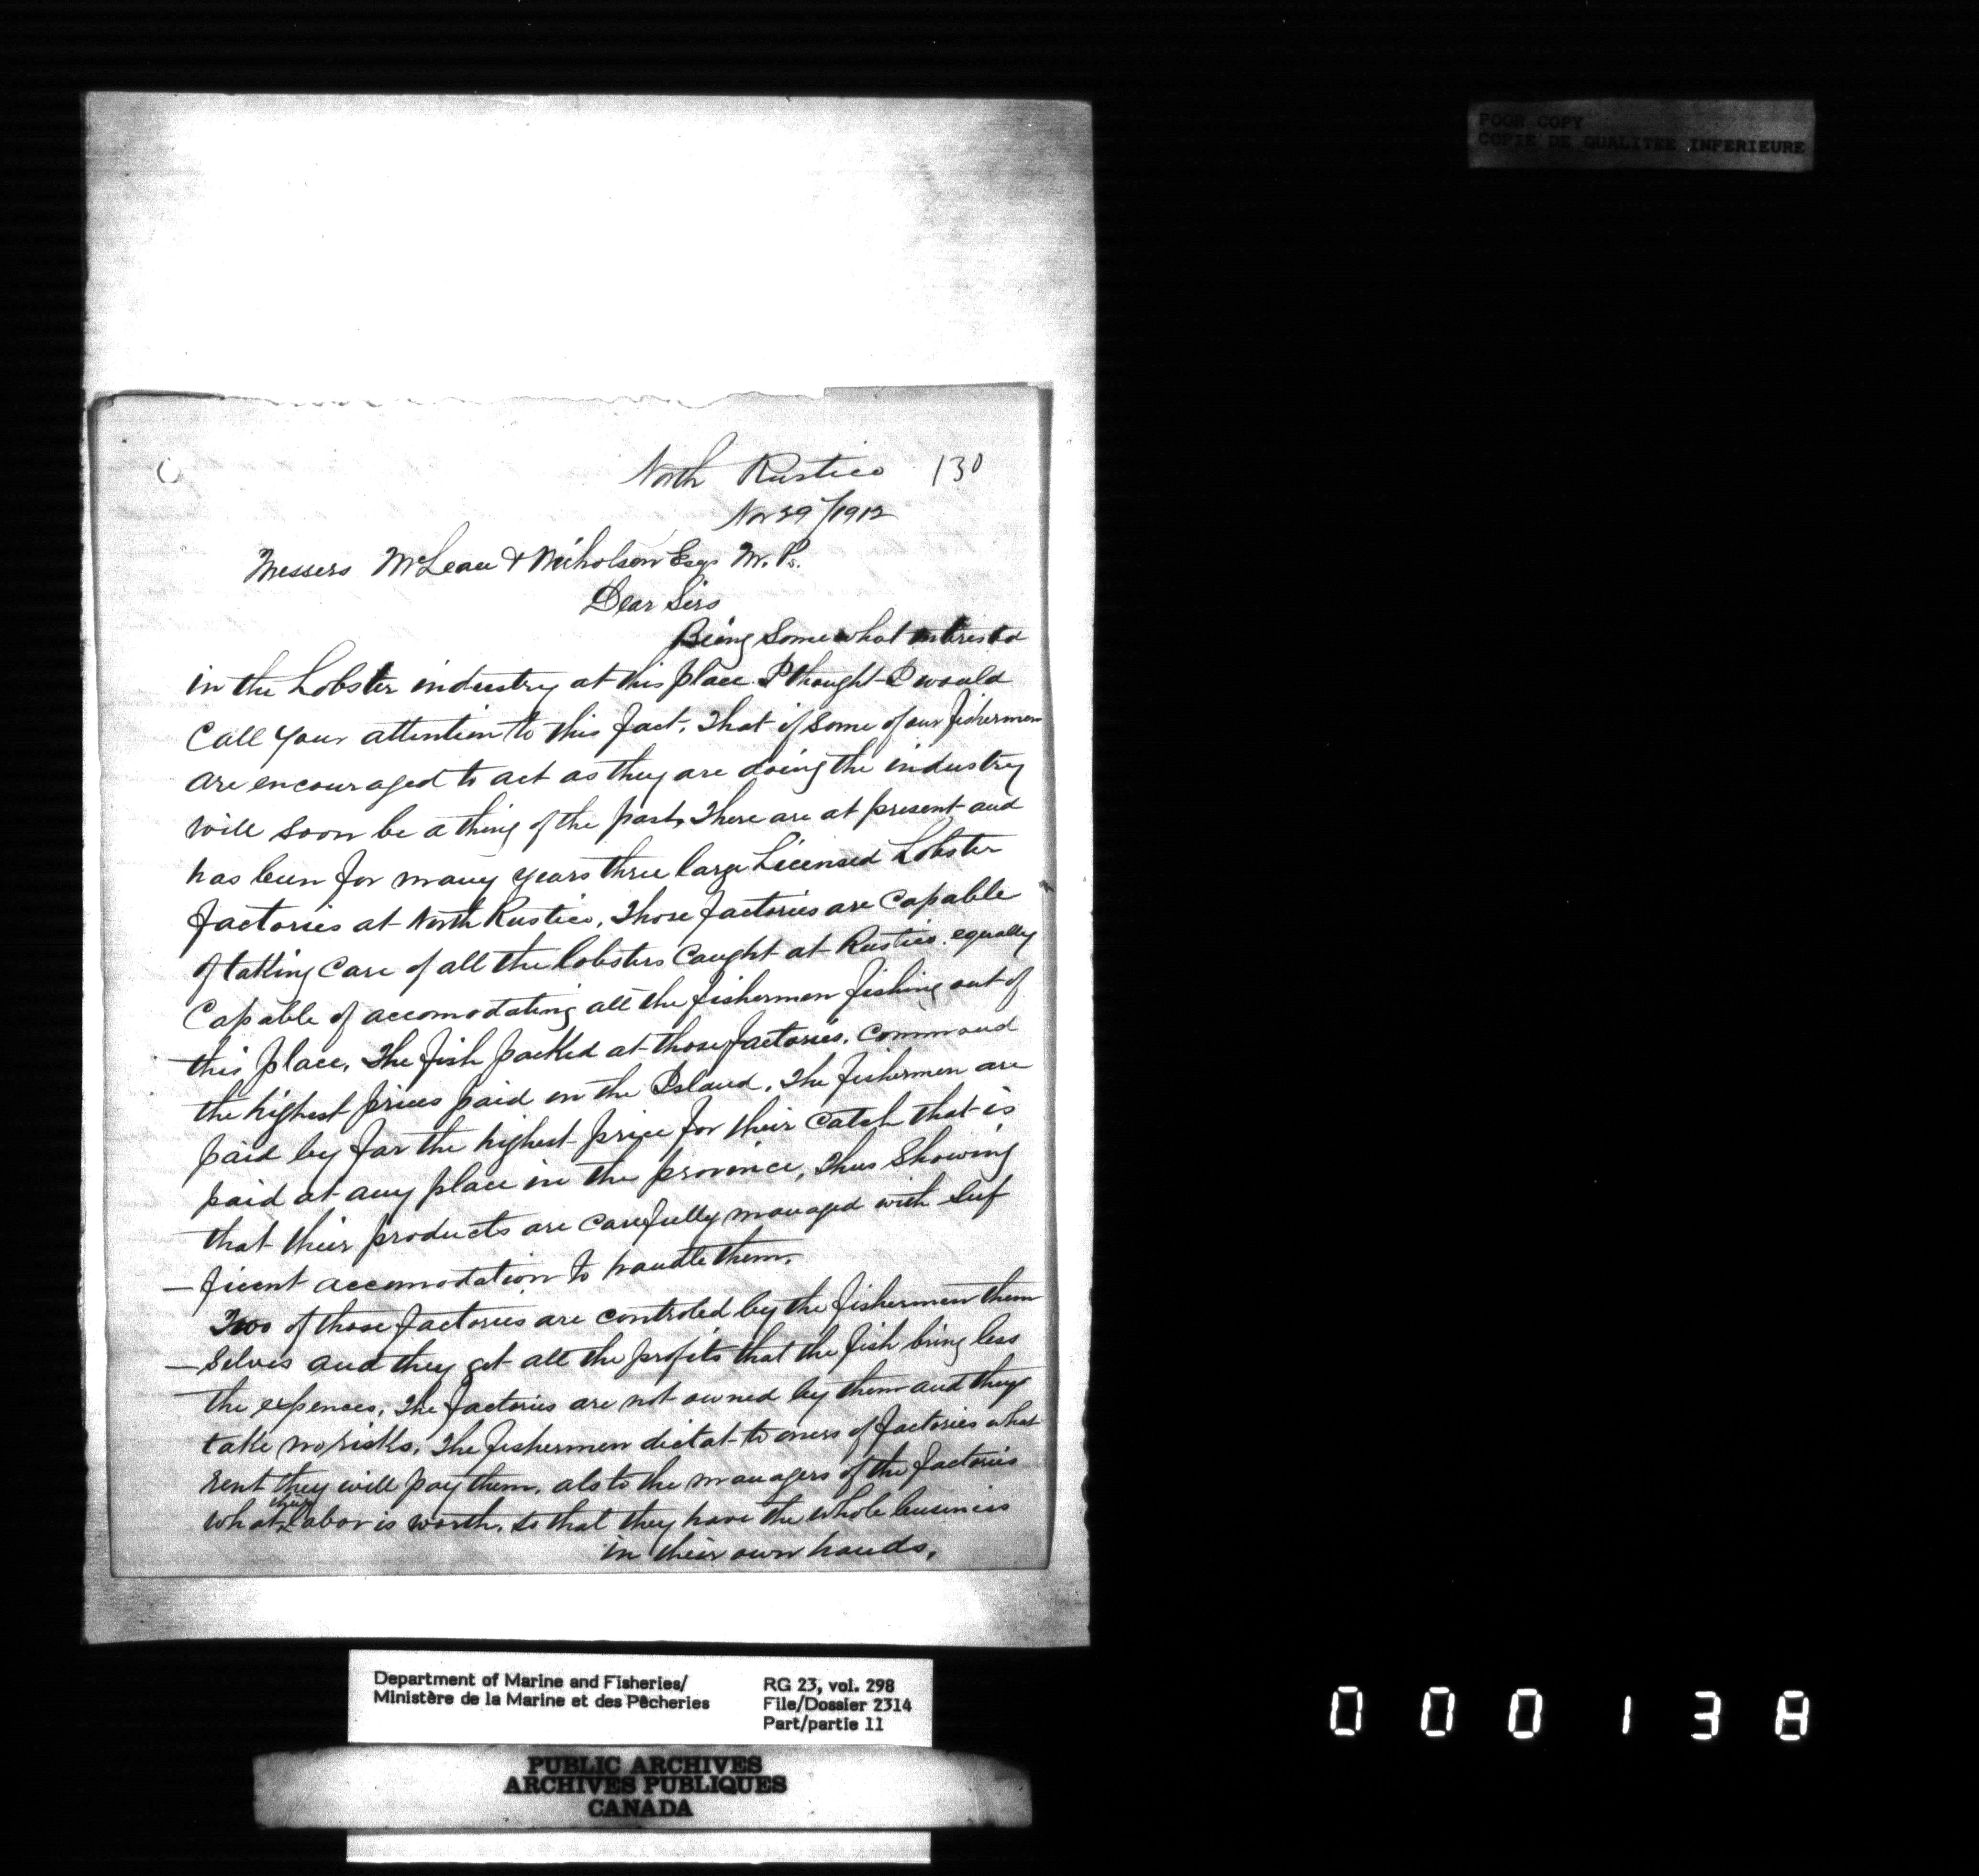 POOR COPY
COPIE DE QUALITEE INFERIEURE
North Rustico 130
Nov 29/1912
Messers McLean & Nicholson Esqs M. Ps.
Dear Sirs
Being Somewhat interested
in the Lobster industry at this place I thought I would
Call your attention to this fact. That if some of our fishermen
are encouraged to act as they are doing the industry
will soon be a thing of the past. There are at present and
has been for many years three large Licensed Lobster
factories at North Rustico. Those factories are Capable
of taking care of all the lobsters caught at Rustico. equally
Capable of accomodating all the fishermen fishing out of
this place. The fish packed at those factories. command
the highest prices paid on the Island. The fishermen are
paid by far the highest price for their catch that is
paid at any place in the province, thus Showing
that their products are carefully managed with suf
– ficent accomodation to handle them.
Two of those factories are controled by the fishermen them
– selves and they get all the profits that the fish bring less
the expences. The factories are not owned by them and they
take no risks. The fishermen dictat to oners of factories what
rent they will pay them. als to the managers of the factories
what their Labor is worth. so that they have the whole business
in their own hands.
Department of Marine and Fisheries/ RG 23, vol. 298
Ministère de la Marine et des Pêcheries File/Dossier 2314
Part/partie 11
PUBLIC ARCHIVES
ARCHIVES PUBLIQUES
CANADA
000138